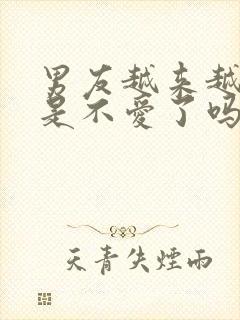 男友越来越
是不愛了吗
天青失煙雨